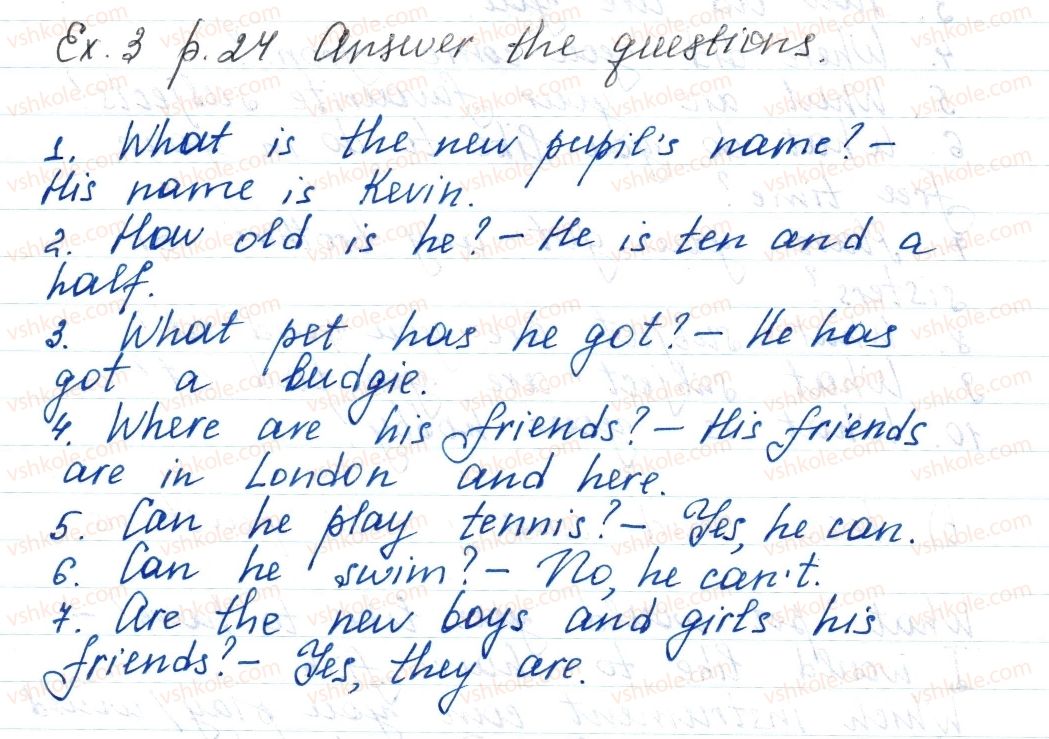 Ex. 3 p. 24 Answer the questions.
1. What is the new pupil's name? –
His name is Kevin.
2. How old is he? – He is ten and a
half.
3. What pet has he got? – He has
got a budgie.
4. Where are his friends? – His friends
are in London and here.
5. Can he play tennis? – Yes, he can.
6. Can he swim? – No, he can't.
7. Are the new boys and girls his
friends? – Yes, they are.